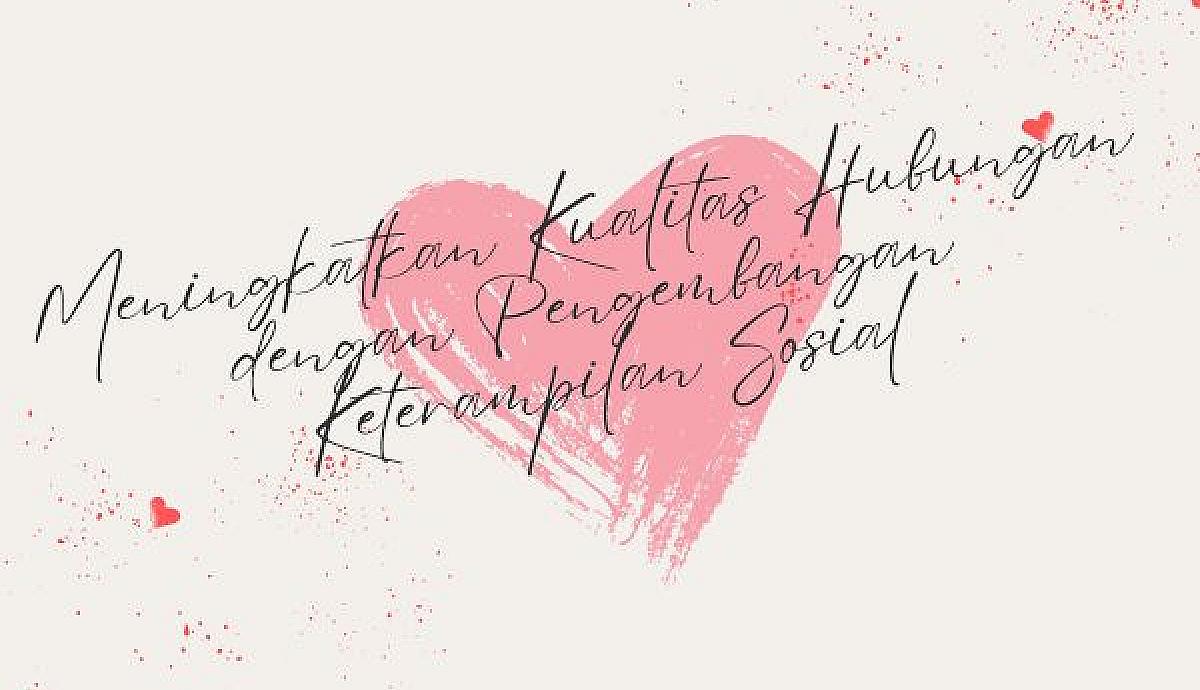 Meningkatkan Kualitas Hubungan
dengan Pengembangan
Keterampilan Sosial